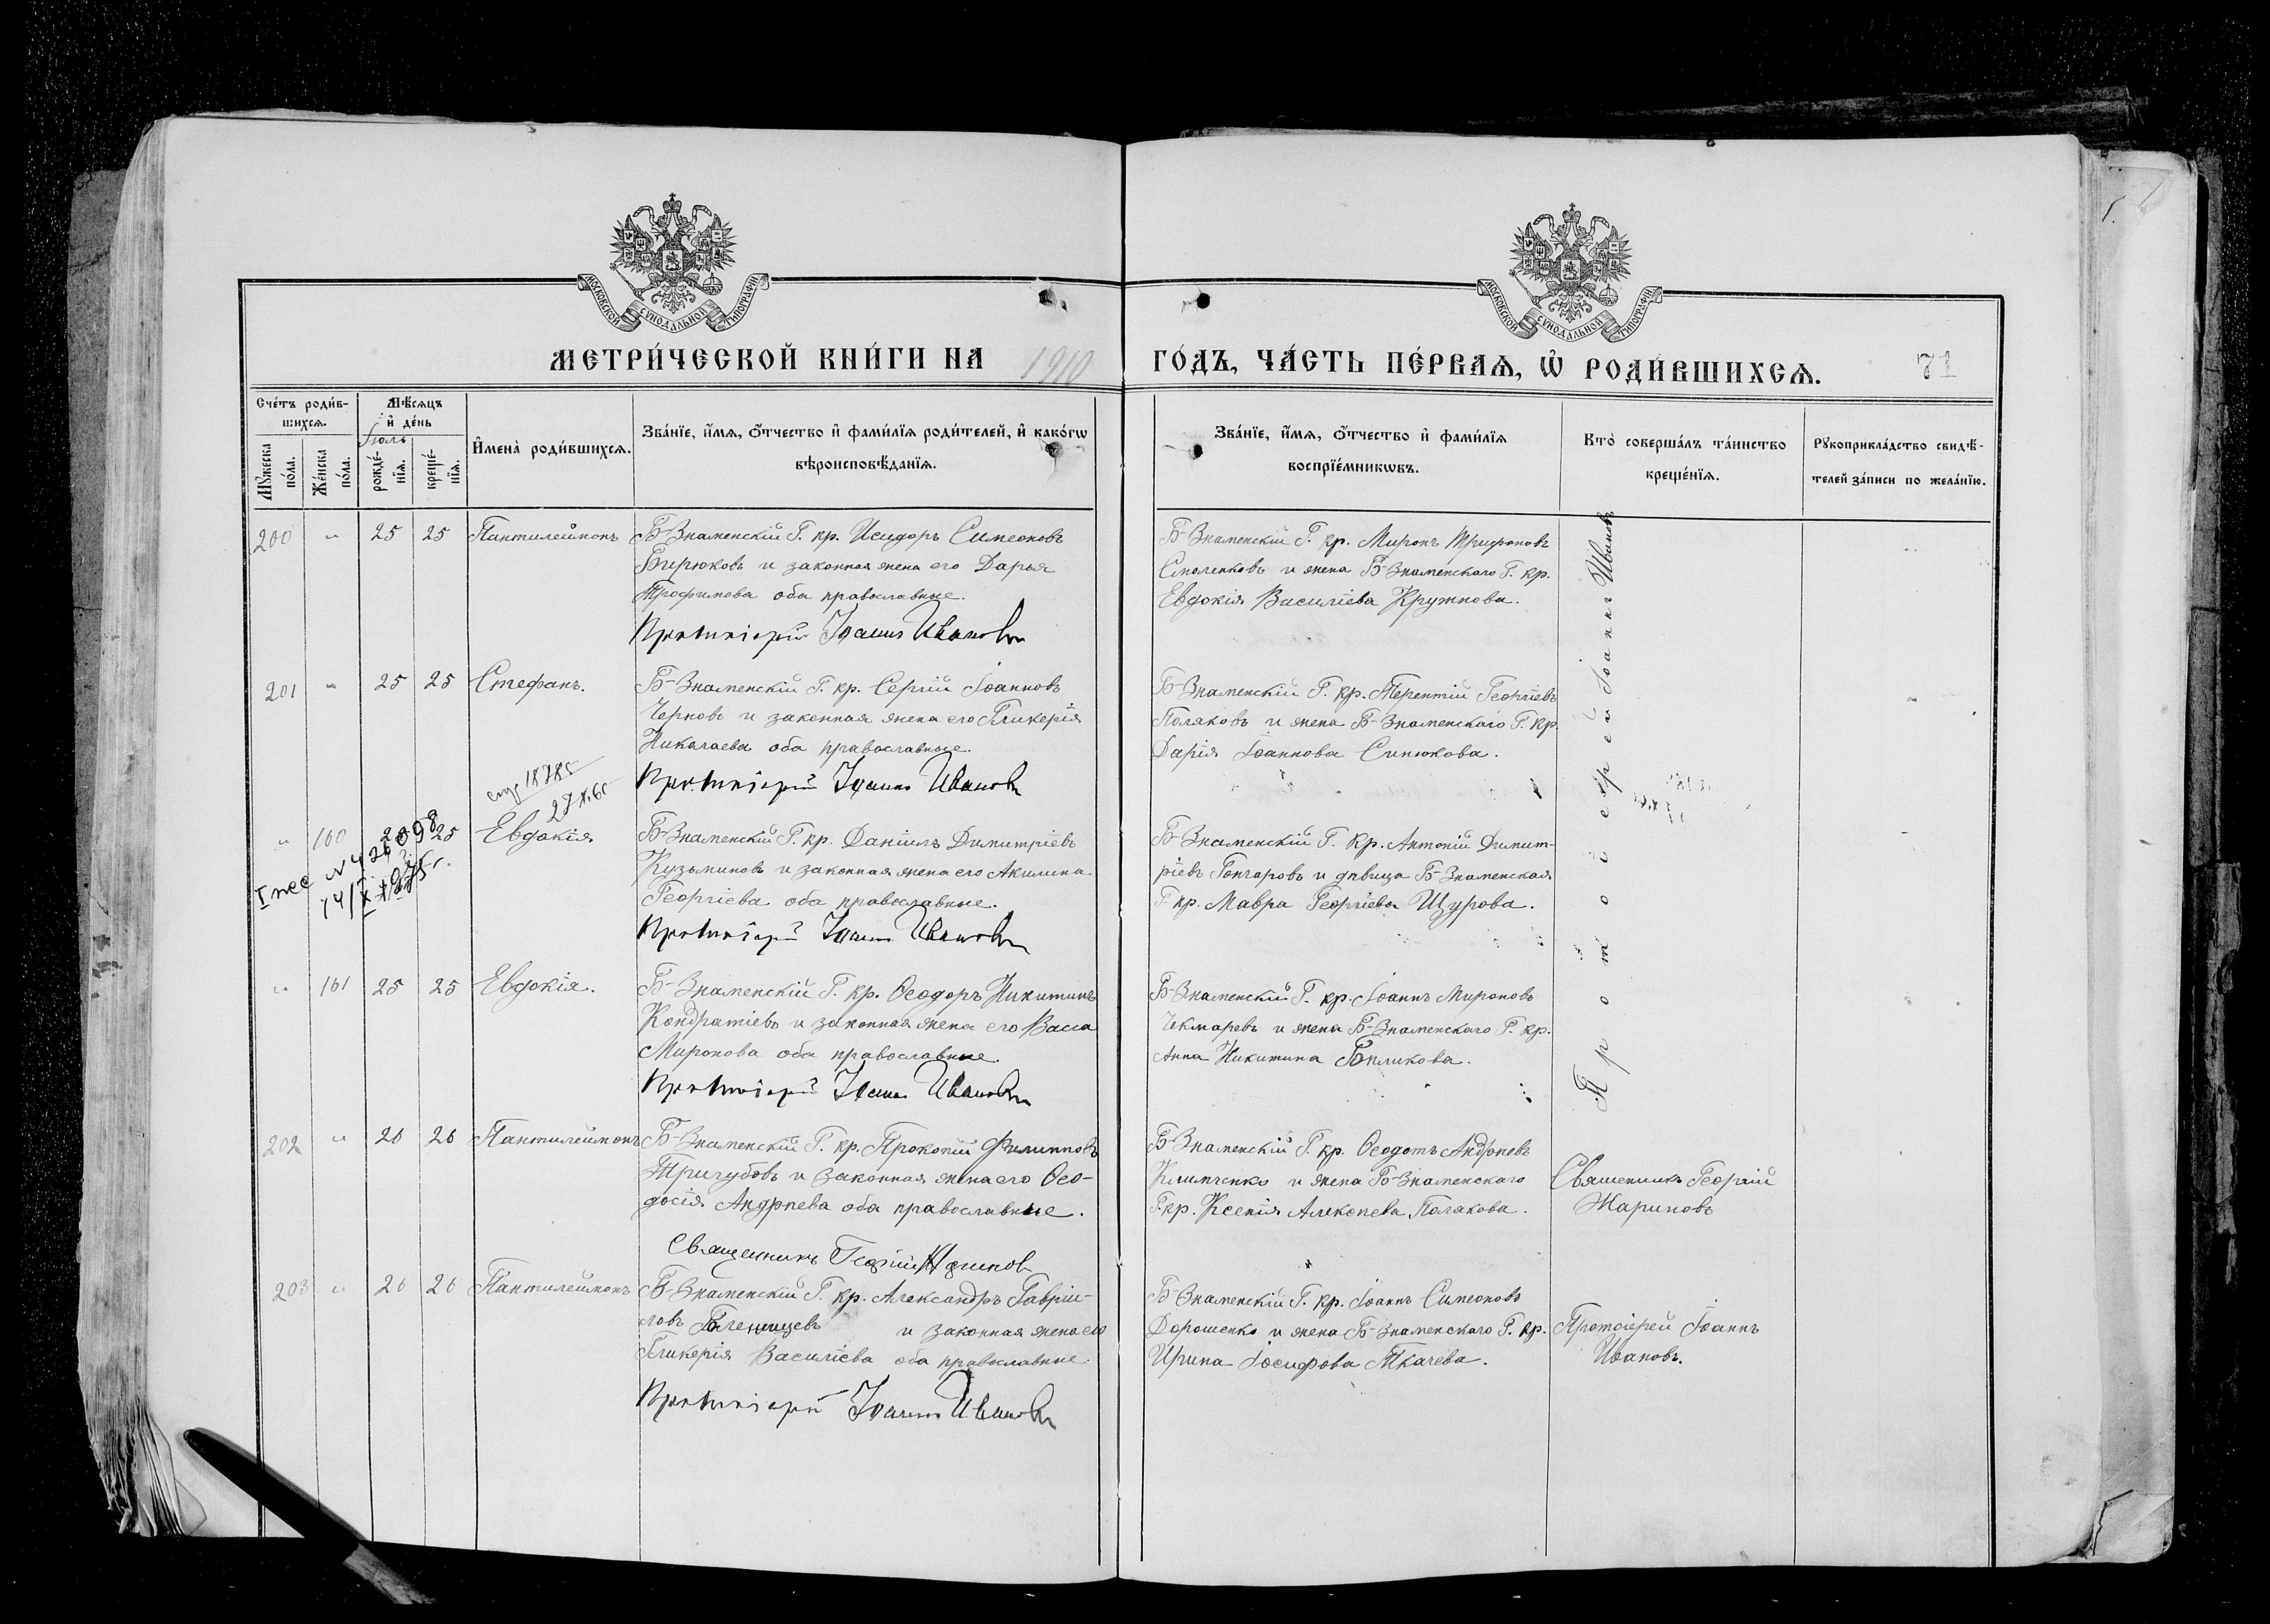 МОСКОВСКОЙ СѴНОДАЛЬНОЙ ТИПОГРАФІИ
МОСКОВСКОЙ СѴНОДАЛЬНОЙ ТИПОГРАФІИ
МЕТРИ́ЧЕСКОЙ КНИ́ГИ НА 1910 ГО́ДЪ, ЧА́СТЬ ПЕ́РВАѦ, Ѡ҆ РОДИ́ВШИХСѦ. 71
Сче́тъ роди́в-
шихсѧ.
Мѣ́сѧцъ
и҆ де́нь
Іюль
Мꙋ́жеска по́ла.
Же́нска по́ла.
рожде́-нїѧ.
креще́-нїѧ.
И҆мена̀ роди́вшихсѧ.
Зва́нїе, и҆́мѧ, ѻ҆́тчество и҆ фами́лїѧ роди́телей, и҆ како́гѡ
вѣроисповѣ́данїѧ.
Зва́нїе, и҆́мѧ, ѻ҆́тчество и҆ фами́лїѧ
воспрїе́мникѡвъ.
Кто̀ соверша́лъ та́инство
креще́нїѧ.
Рꙋкоприкла́дство свидѣ́-
телей за́писи по жела́нїю.
200 " 25 25 Пантилеймонъ
Б-Знаменскій Г. кр. Исидоръ Симеоновъ
Бирюковъ и законная жена его Дарья
Трофимова оба православные.
Протоіерей Іоаннъ Ивановъ
Б-Знаменскій Г. кр. Миронъ Трифоновъ
Смоленковъ и жена Б-Знаменскаго Г. кр.
Евдокія Василіева Кружнова.
Протоіерей Іоаннъ Ивановъ
201 " 25 25 Стефанъ.
Б-Знаменскій Г. кр. Сергій Іоанновъ
Черновъ и законная жена его Гликерія
Николаева оба православные.
Протоіерей Іоаннъ Ивановъ
Б-Знаменскій Г. кр. Терентій Георгіевъ
Поляковъ и жена Б-Знаменскаго Г. кр.
Дарія Іоаннова Синюкова.
" 160 25 25 Евдокія
Б-Знаменскій Г. кр. Даніилъ Димитріевъ
Кузьминовъ и законная жена его Акилина
Георгіева оба православные.
Протоіерей Іоаннъ Ивановъ
Б-Знаменскій Г. кр. Антоній Димит-
ріевъ Гончаровъ и дѣвица Б-Знаменская
Г. кр. Мавра Георгіева Щурова.
" 161 25 25 Евдокія.
Б-Знаменскій Г. кр. Ѳеодоръ Никитинъ
Кондратіевъ и законная жена его Васса
Миронова оба православные.
Протоіерей Іоаннъ Ивановъ
Б-Знаменскій Г. кр. Іоаннъ Мироновъ
Чекмаревъ и жена Б-Знаменскаго Г. кр.
Анна Никитина
202 " 26 26 Пантилеймонъ
Б-Знаменскій Г. кр. Прокопій Филипповъ
Тригубовъ и законная жена его Ѳео-
досія Андрѣева оба православные.
Священникъ Георгій Жариновъ
Б-Знаменскій Г. кр. Ѳеодотъ Андрѣевъ
Климченко и жена Б-Знаменскаго
Г. кр. Ксенія Алексѣева Полякова.
Священникъ Георгій
Жариновъ
203 " 26 26 Пантилеймонъ
Б-Знаменскій Г. кр. Александръ Гавріи-
ловъ и законная жена его
Гликерія Василіева оба православные.
Протоіерей Іоаннъ Ивановъ
Б-Знаменскій Г. кр. Іоаннъ Симеоновъ
Дорошенко и жена Б-Знаменскаго Г. кр.
Ирина Іосифова Ткачева.
Протоіерей Іоаннъ
Ивановъ.